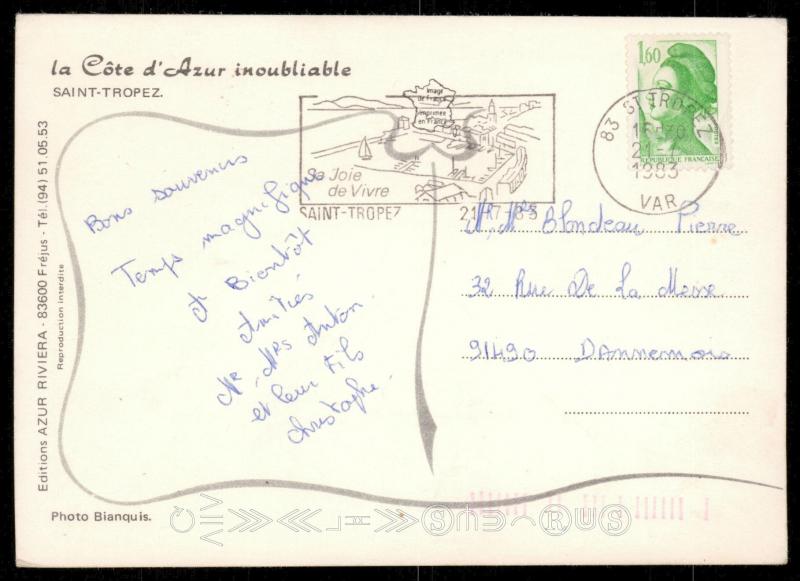 la Côte d'Azur inoubliable
SAINT-TROPEZ.
image
de France
imprimée
en France
Sa Joie
de Vivre
SAINT-TROPEZ 21-7-83
1,60
POSTES
REPUBLIQUE FRANÇAISE
83 ST TROPEZ
21-7
1983
VAR
Bons souvenirs
Temps magnifique
A Bientôt
Amitiés
Mr, Mrs Anton
et leur Fils
christophe.
Mr, Mrs Blondeau Pierre
32 Rue De La Messe
91490 Dannemois
Editions AZUR RIVIERA - 83600 Fréjus - Tél.(94) 51.05.53
Reproduction interdite
Photo Bianquis.